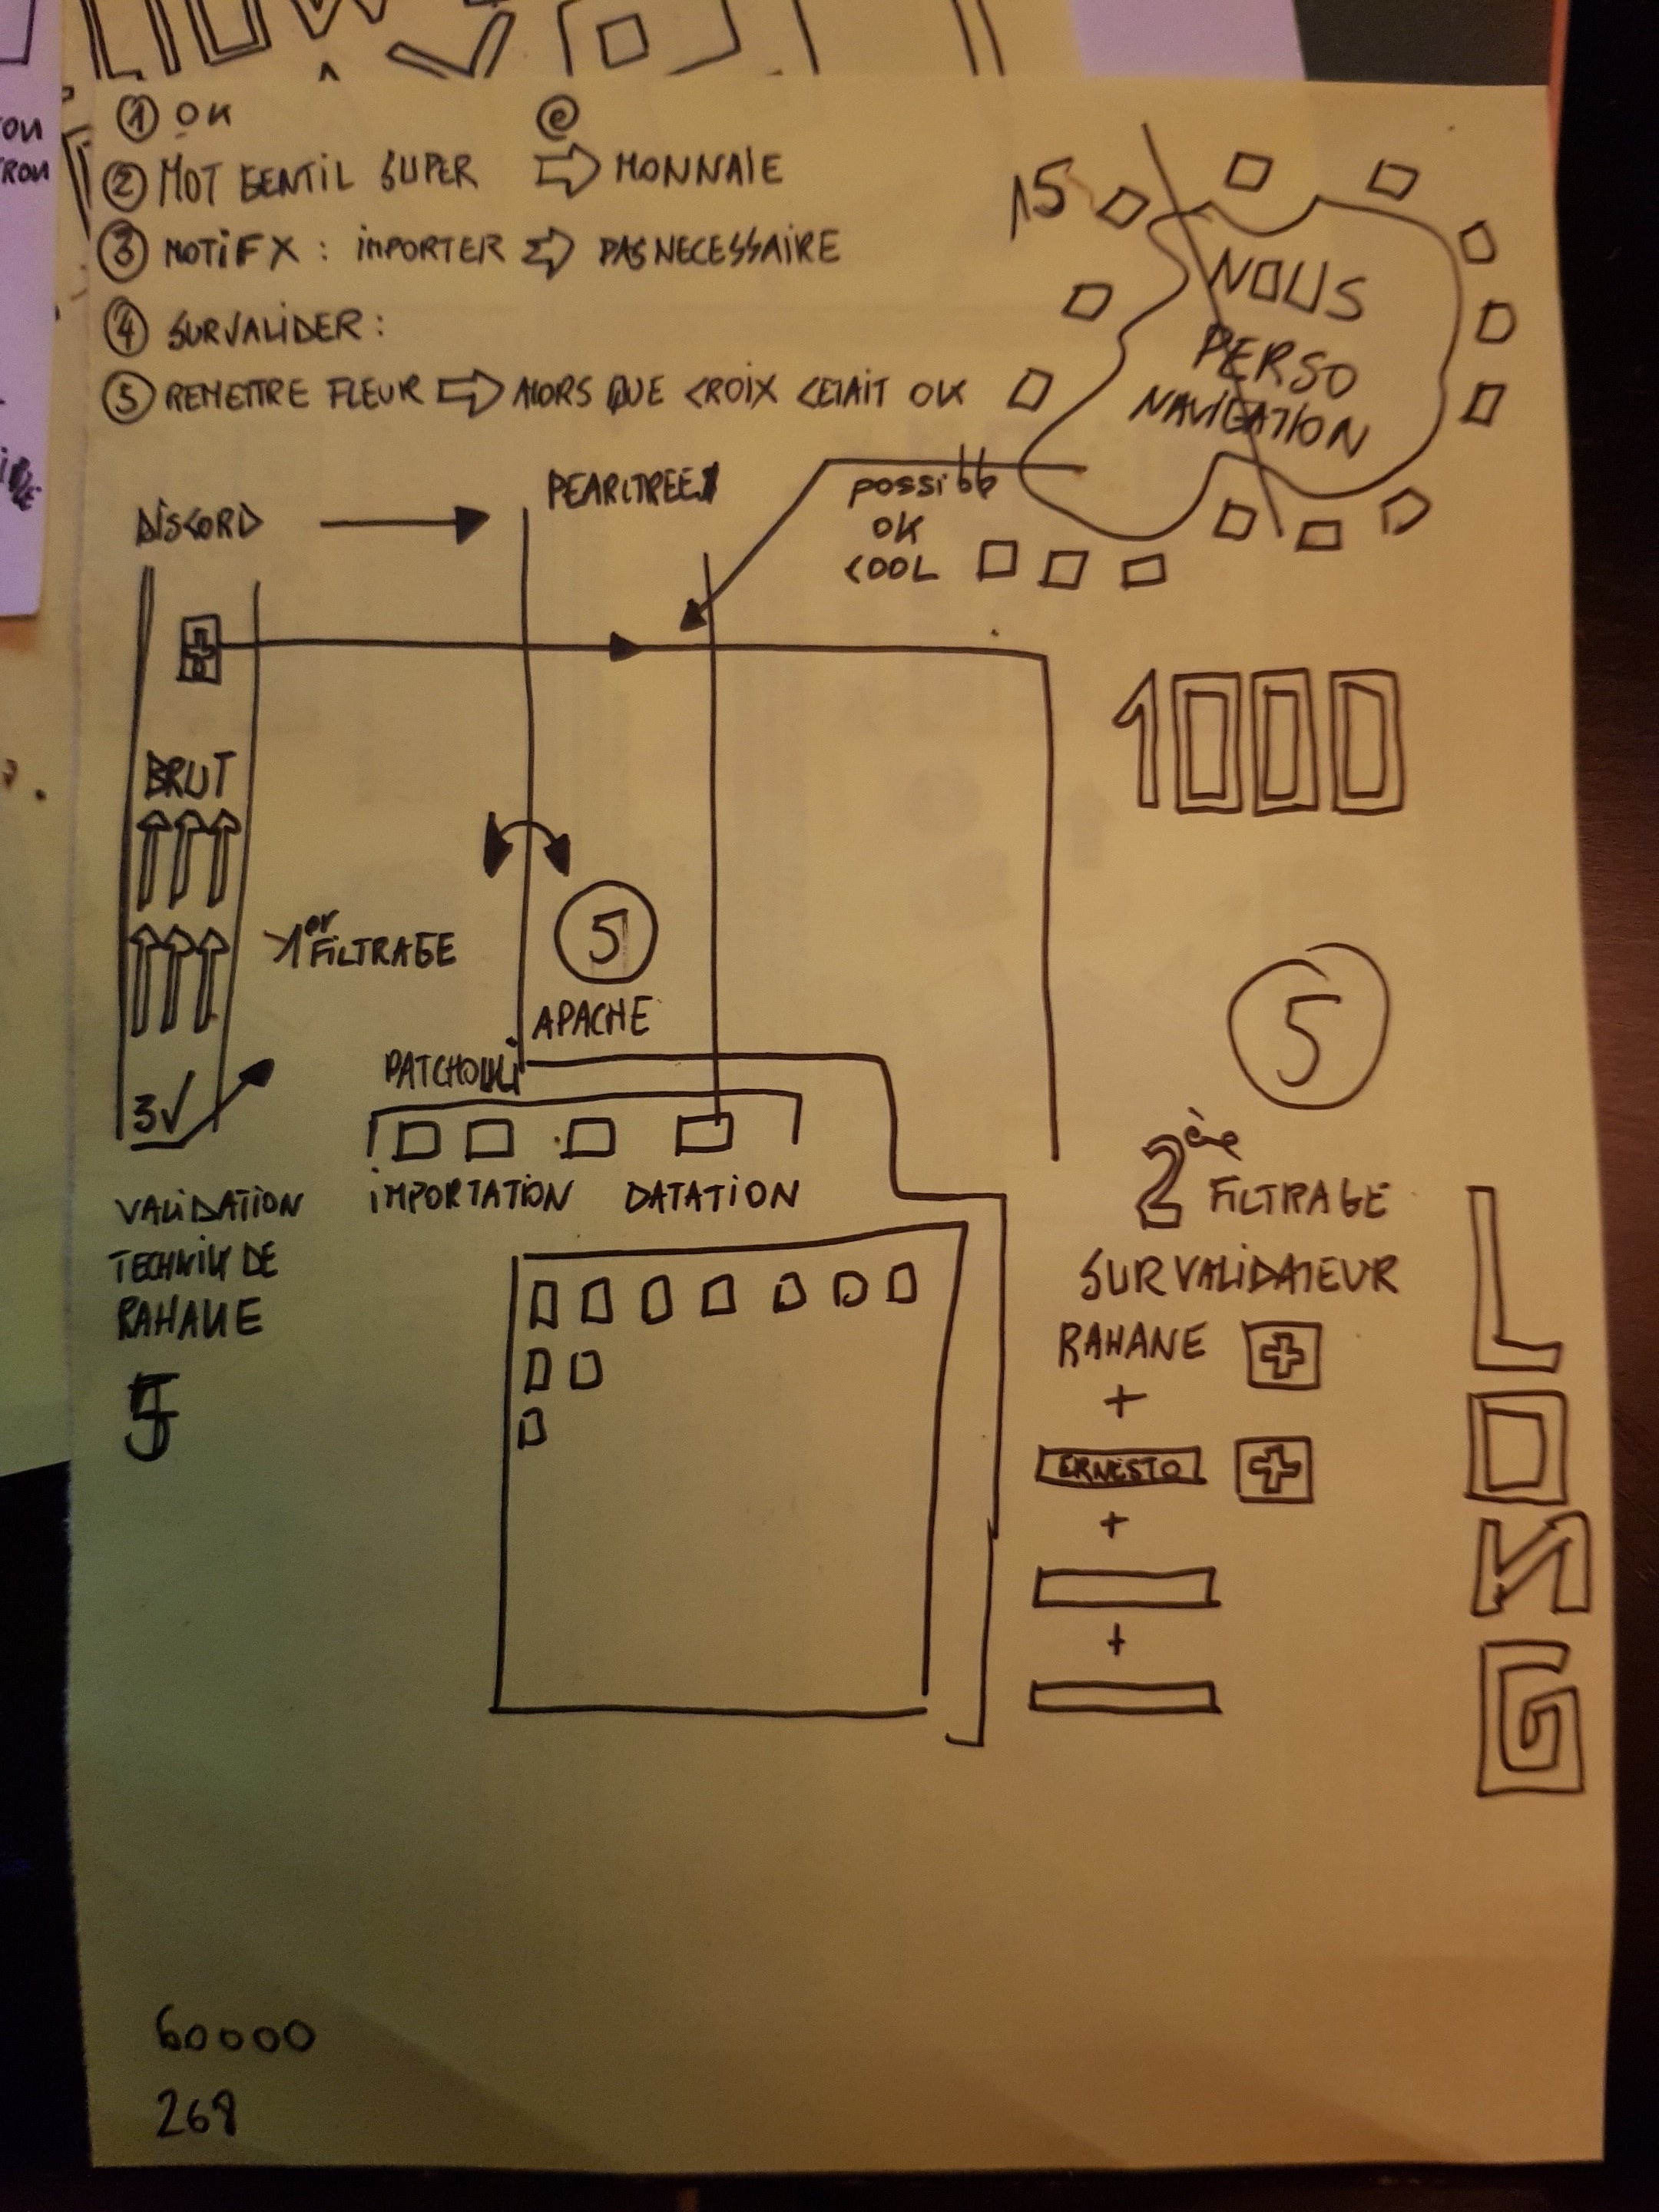 ① OK @
② MOT GENTIL SUPER ⇨ MONNAIE
③ MOTIF X : IMPORTER ⇨ PAS NECESSAIRE
④ SURVALIDER :
⑤ REMETTRE FLEUR ⇨ ALORS QUE CROIX CETAIT OK
15
NOUS
PERSO
NAVIGATION
DISCORD → PEARLTREES
possibb
OK
COOL
BRUT
1000
1er FILTRAGE
5
APACHE
PATCHOULI
3✓
5
IMPORTATION DATATION
VALIDATION
TECHNIK DE
RAHANE
5
2ère
FILTRAGE
SURVALIDATEUR
RAHANE
+
ERNESTO
+
+
LONG
60000
268